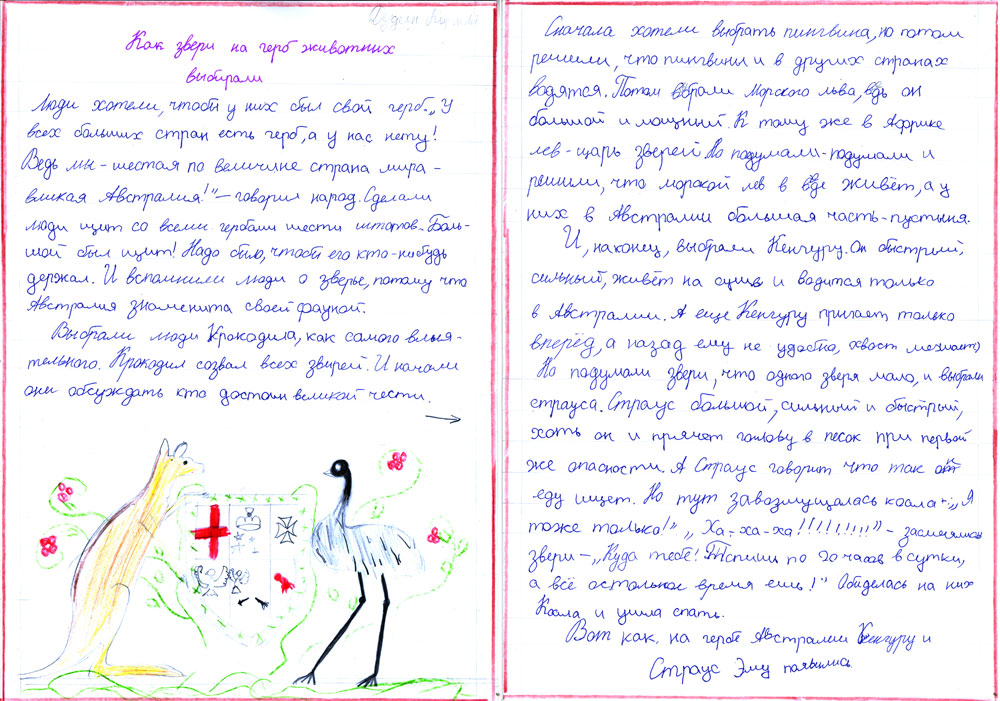 Как звери на герб животних
выбирали
Люди хотели, чтобы у них был свой герб. „У
всех больших стран есть герб, а у нас нету!
Ведь мы - шестая по величине страна мира -
великая Австралия!" - говорил народ. Сделали
люди щит со всеми гербами шести штатов. Боль-
шой был щит! Надо было, чтобы его кто-нибудь
держал. И вспомнили люди о зверье, потому что
Австралия знаменита своей фауной.
Выбрали люди Крокодила, как самого влия-
тельного. Крокодил созвал всех зверей. И начали
они обсуждать кто достоин великой чести.
Сначала хотели выбрать пингвина, но потом
решили, что пингвини и в других странах
водятся. Потом вбрали Морского льва, ведь он
большой и мощный. К тому же в Африке
лев - царь зверей. Но подумали-подумали и
решили, что морской лев в воде живёт, а у
них в Австралии большая часть - пустыня.
И, наконец, выбрали Кенгуру. Он быстрый,
сильный, живёт на суше и водится только
в Австралии. А еще Кенгуру пригает только
вперёд, а назад ему не удобно, хвост мешает)
Но подумали звери, что одного зверя мало, и выбрали
страуса. Страус большой, сильный и быстрый,
хоть он и прячет голову в песок при первой
же опасности. А Страус говорит что так он
еду ищет. Но тут завозмущалась коала -: „Я
тоже только!" „Ха-ха-ха!!!!!!!!!!" - засмеялись
звери - „Куда тебе! Ты спиши по 20 часов в сутки,
а всё остальное время ешь!" Обиделась на них
Коала и ушла спать.
Вот как на гербе Австралии Кенгуру и
Страус Эму появились